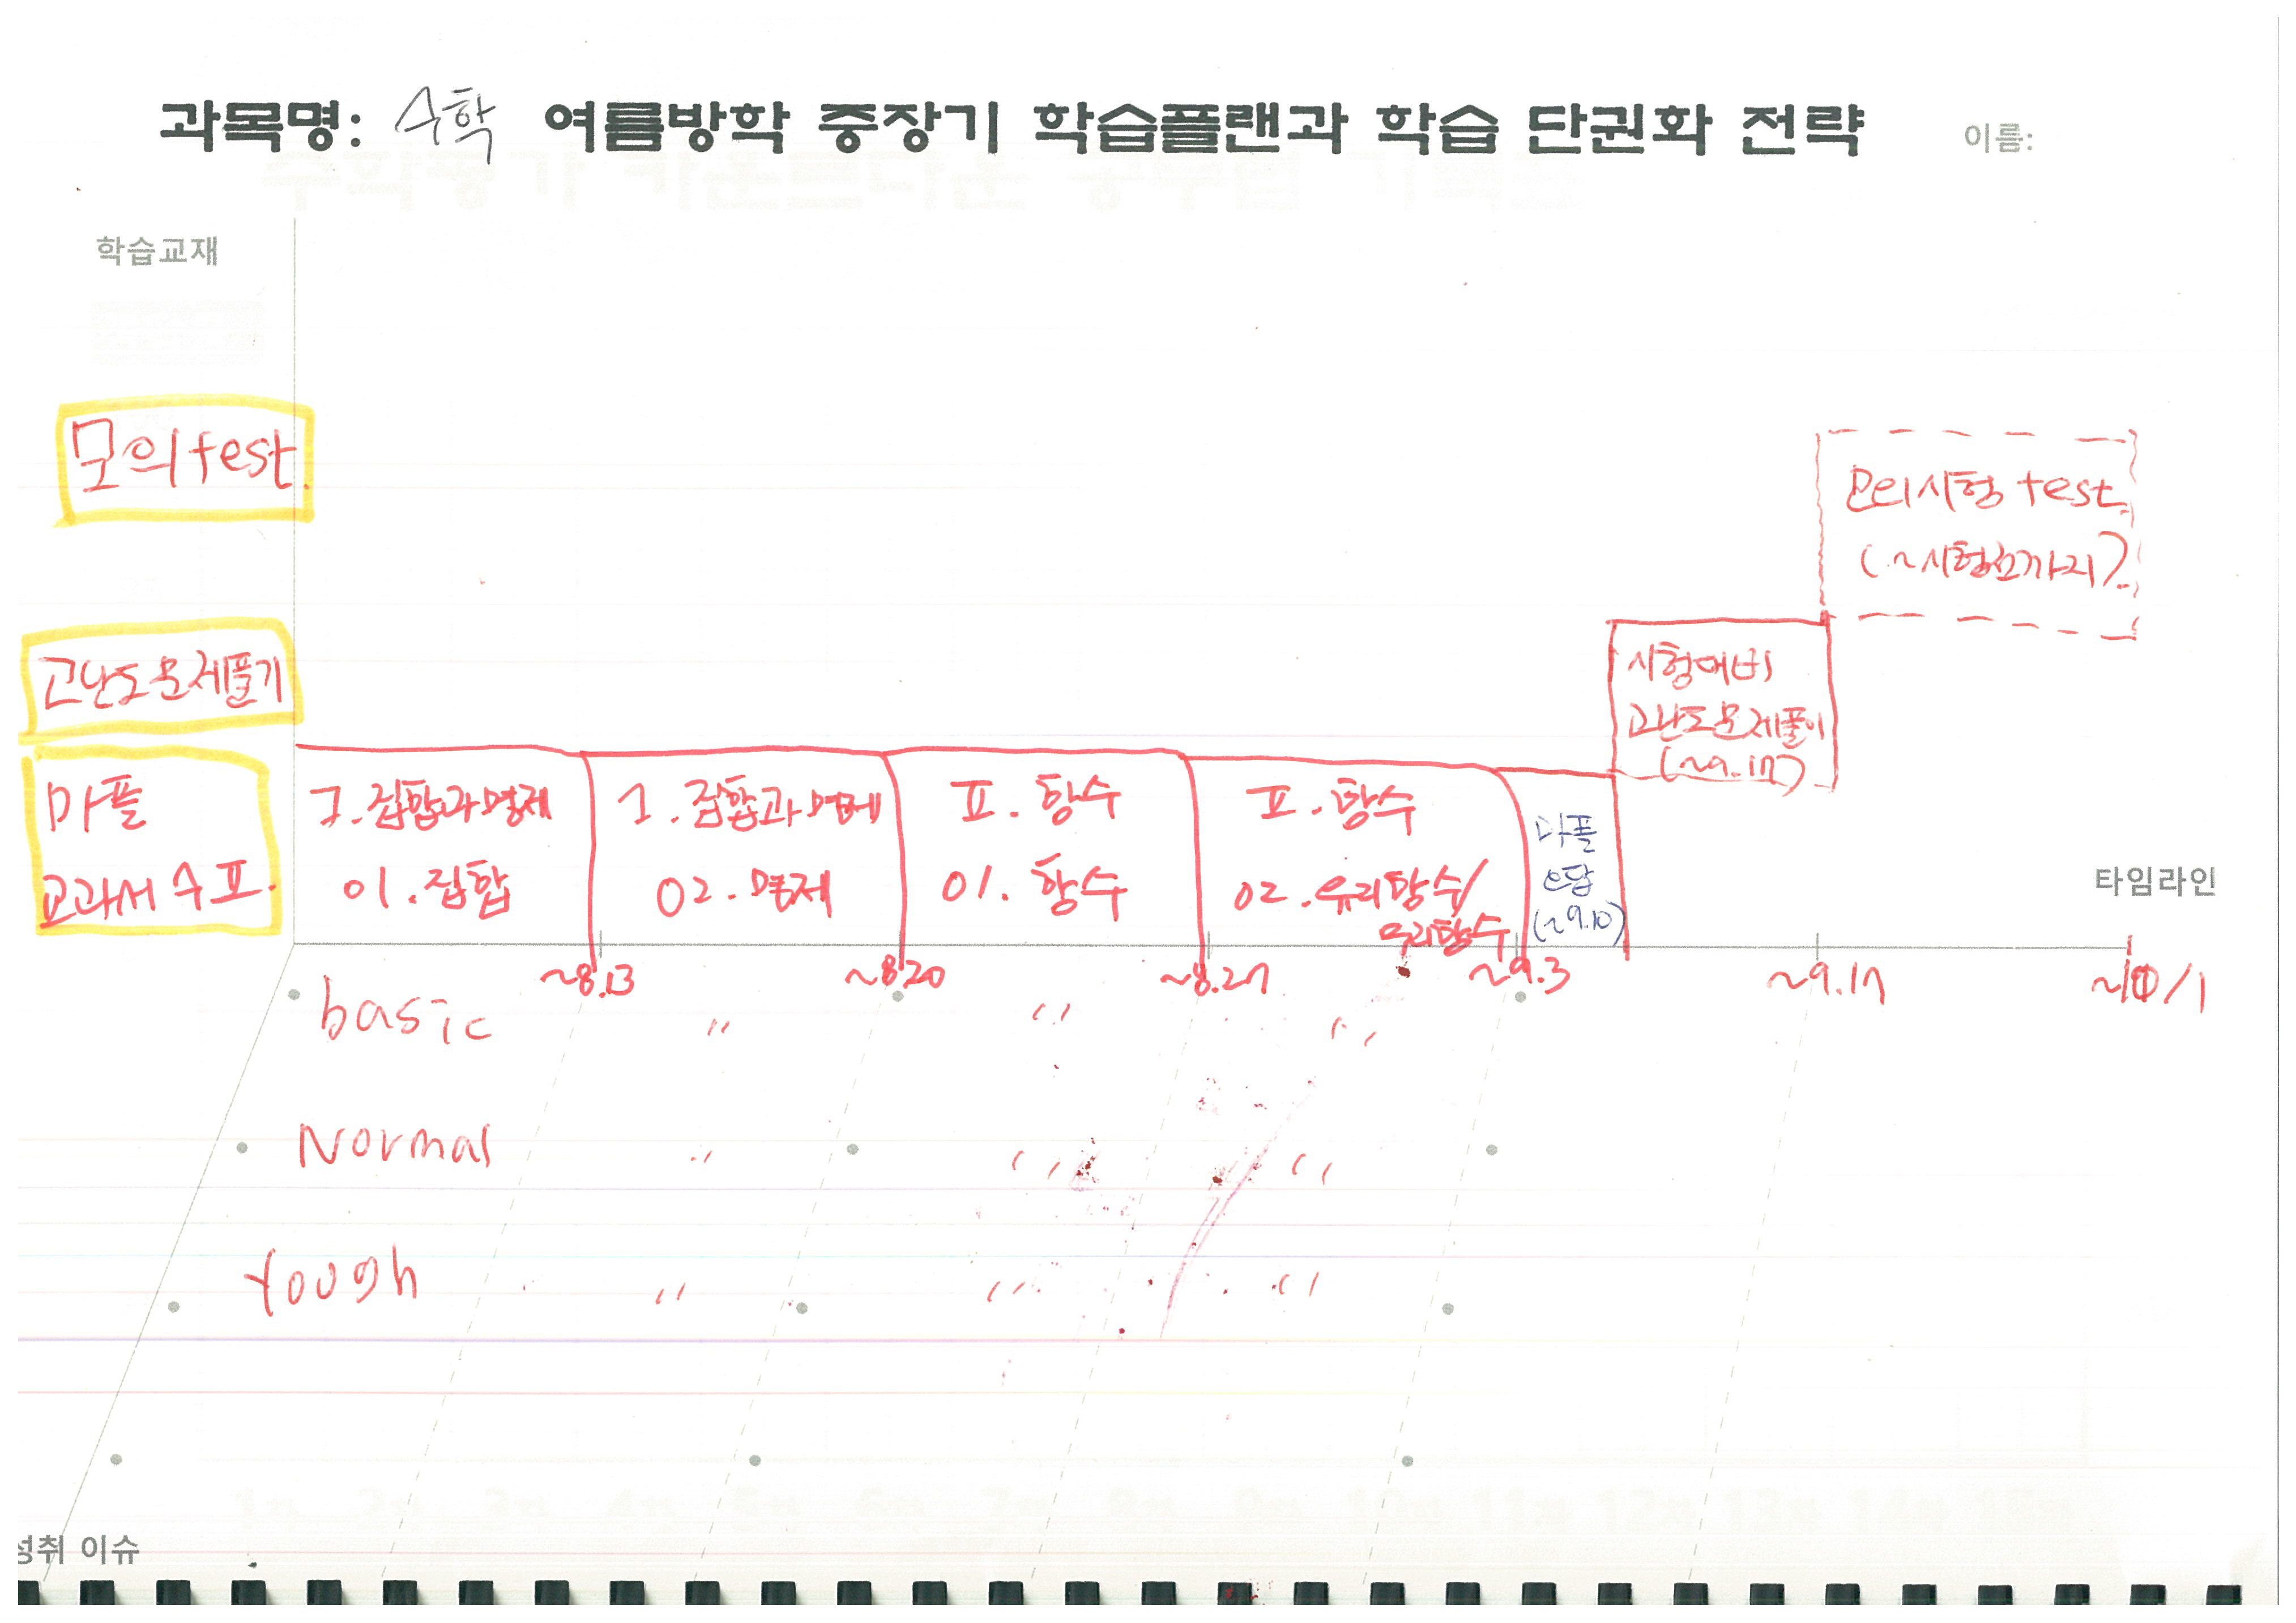 과목명: 수학 여름방학 중장기 학습플랜과 학습 단권화 전략 이름:
학습교재
모의test
모의시험 test
(~시험전까지)
고난도문제풀기
시험대비
고난도문제풀이
(~9.17)
마플
교과서 수Ⅱ.
I. 집합과명제
01. 집합
1. 집합과명제
02. 명제
Ⅱ. 함수
01. 함수
Ⅱ. 함수
02. 유리함수/
무리함수
마플
오답
(~9.10)
타임라인
~8.13
~8.20
~8.27
~9.3
~9.17
~10/1
basic " " "
Normal " " "
tough " " "
성취 이슈